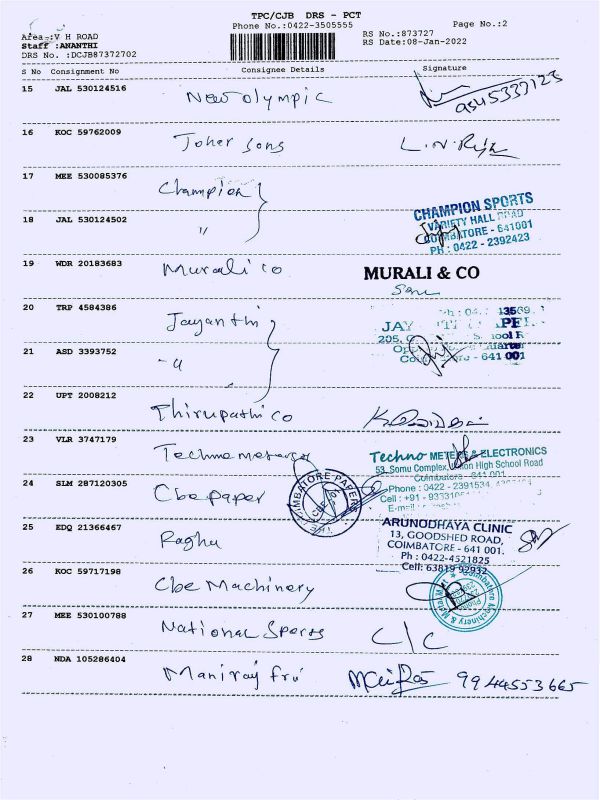 TPC/CJB DRS - PCT
Phone No.:0422-3505555
Page No.:2
Area :V H ROAD
Staff :ANANTHI
DRS No. :DCJB87372702
RS No.:873727
RS Date:08-Jan-2022
S No Consignment No Consignee Details Signature
15 JAL 530124516 New olympic 9545337123
16 KOC 59762009 Joher Sons
17 MEE 530085376 Champion
18 JAL 530124502 "
CHAMPION SPORTS
VARIETY HALL ROAD
COIMBATORE - 641001
PH : 0422 - 2392423
19 WDR 20183683 Murali co MURALI & CO
20 TRP 4584386 Jayanthi
21 ASD 3393752 - "
22 UPT 2008212 Thirupathi co
23 VLR 3747179 Techno
Techno METERS & ELECTRONICS
53, Somu Complex, Union High School Road
Coimbatore - 641 001
Phone : 0422 - 2391534
24 SLM 287120305 Cbe paper
THE COIMBATORE PAPERS
25 EDQ 21366467 Raghu
ARUNODHAYA CLINIC
13, GOODSHED ROAD,
COIMBATORE - 641 001.
Ph : 0422-4521825
Cell: 63819 92932
26 KOC 59717198 Cbe Machinery
27 MEE 530100788 National Sports C/C
28 NDA 105286404 Maniraj 9944553665